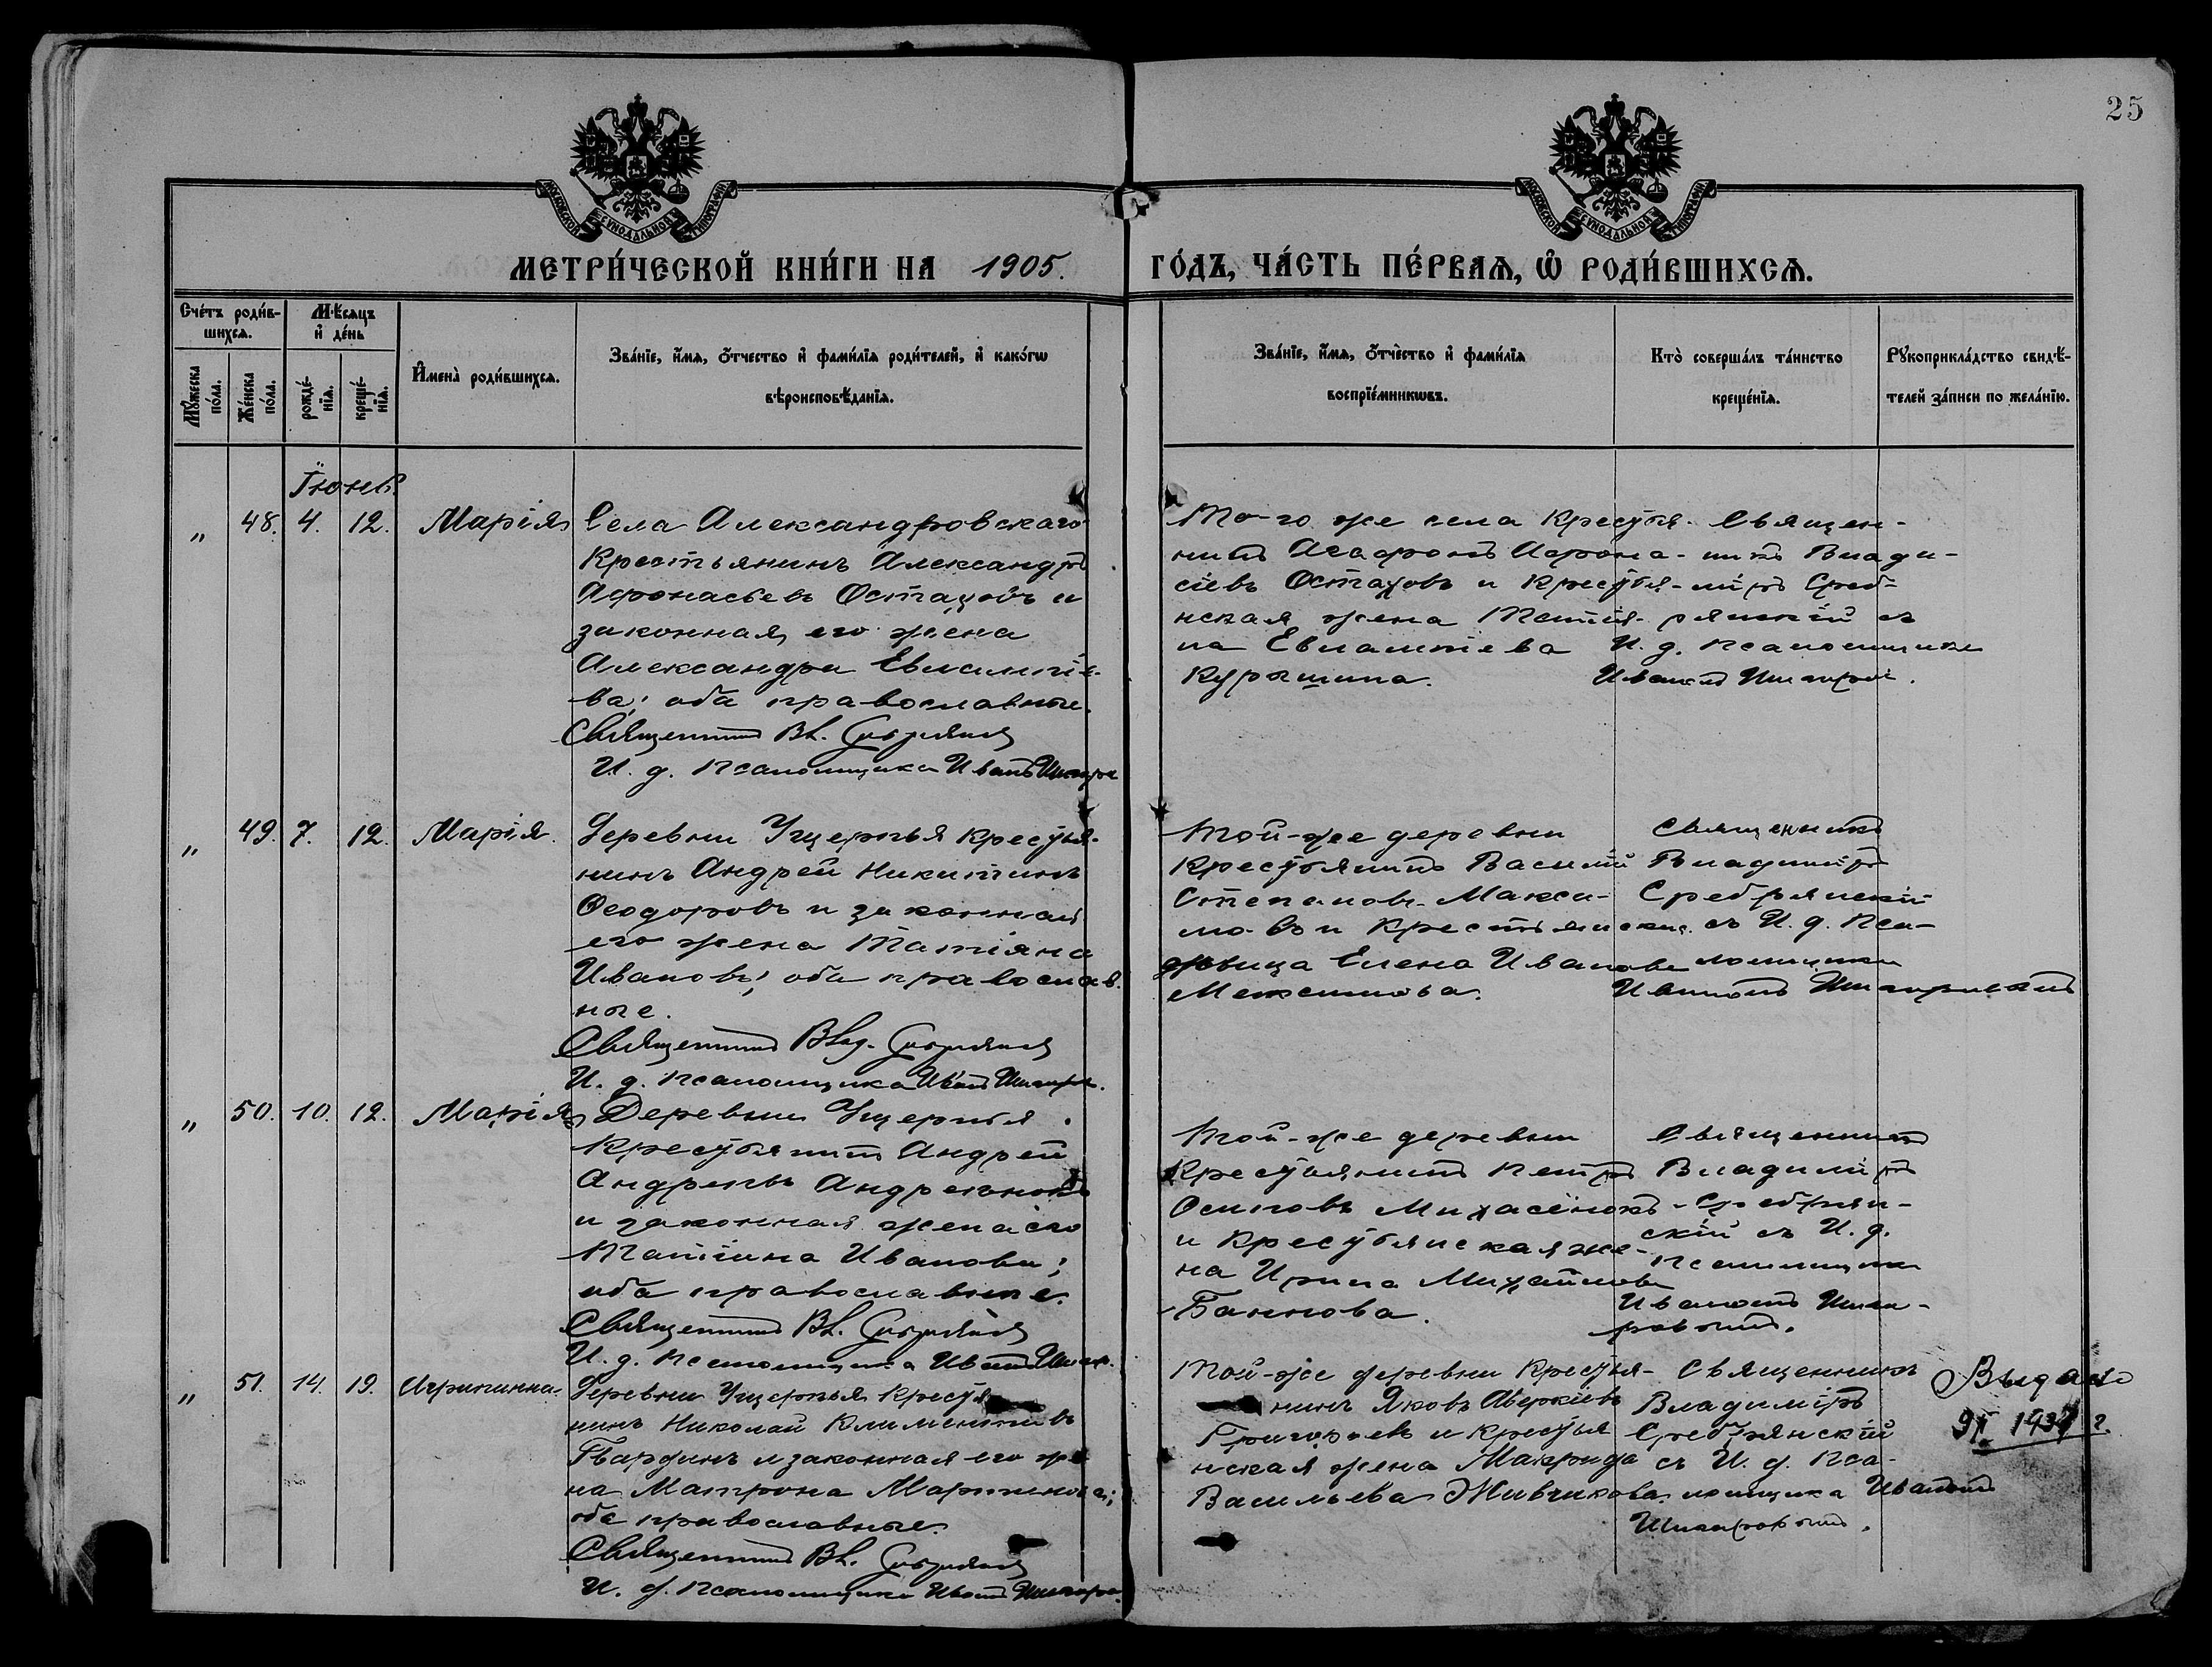 25
МОСКОВСКОЙ СѴНОДАЛЬНОЙ ТИПОГРАФІИ
МОСКОВСКОЙ СѴНОДАЛЬНОЙ ТИПОГРАФІИ
МЕТРИ́ЧЕСКОЙ КНИ́ГИ НА 1905. ГО́ДЪ, ЧА́СТЬ ПЕ́РВАѦ, Ѡ РОДИ́ВШИХСѦ.
Сче́тъ роди́в-
шихсѧ.
Мѣ́сяцъ
и де́нь
Мꙋжеска
по́ла.
Же́нска
по́ла.
рожде́-
нїѧ.
креще́-
нїѧ.
Имена̀ роди́вшихсѧ.
Зва́нїе, и́мѧ, ѻ́тчество и фами́лїѧ роди́телей, и како́гѡ
вѣроисповѣ́данїѧ.
Зва́нїе, и́мѧ, ѻ́тчество и фами́лїѧ
воспрїе́мникѡвъ.
Кто̀ соверша́лъ та́инство
креще́нїѧ.
Рꙋкоприкла́дство свидѣ́-
телей за́писи по жела́нїю.
Іюнь.
„ 48. 4. 12. Марія
Села Александровскаго
Крестьянинъ Александръ
Афонасьевъ Остаховъ и
законная его жена
Александра Евлампіе-
ва; оба православные.
Священникъ Вл.
И. д. Псаломщика Иванъ
Того же села Крестья-
нинъ Агафонъ Афона-
сіевъ Остаховъ и Крестья-
нская жена Татія-
на Евлампіева
Священ-
никъ Влади-
міръ Среб-
рянскій съ
И. д. псаломщика
Иваномъ
„ 49. 7. 12. Марія.
Деревни Ущерпья Крестья-
нинъ Андрей Никитинъ
Ѳеодоровъ и законная
его жена Татіяна
Иванова; оба православ-
ные.
Священникъ Влад.
И. д. Псаломщика Иванъ
Той-же деревни
Крестьянинъ Василій
Степановъ Макси-
мовъ и Крестьянская
дѣвица Елена Иванова
Максимова.
Священникъ
Владиміръ
Сребрянскій
съ И. д. Пса-
ломщика
Иваномъ
„ 50. 10. 12. Марія
Деревни Ущерпья
Крестьянинъ Андрей
Андреевъ Андреенковъ
и законная жена его
Татіяна Иванова;
оба православные.
Священникъ Вл.
И. д. Псаломщика Иванъ
Той-же деревни
Крестьянинъ Петръ
Осиповъ
и Крестьянская же-
на Ирина Михайлова
Баннова.
Священникъ
Владиміръ
Сребрян-
скій съ И. д.
Псаломщика
Иваномъ
„ 51. 14. 19. Агрипинна.
Деревни Ущерпья Крестья-
нинъ Николай Климентьевъ
Гвардинъ и законная его же-
на Матрона Мартинова;
оба православные.
Священникъ Вл.
И. д. Псаломщика Иванъ
Той-же деревни Крестья-
нинъ Яковъ Аверкіевъ
Григорьевъ и Крестья-
нская жена Макрида
Васильева Живчикова.
Священникъ
Владиміръ
Сребрянскій
съ И. д. Пса-
ломщика Иваномъ
Выдано